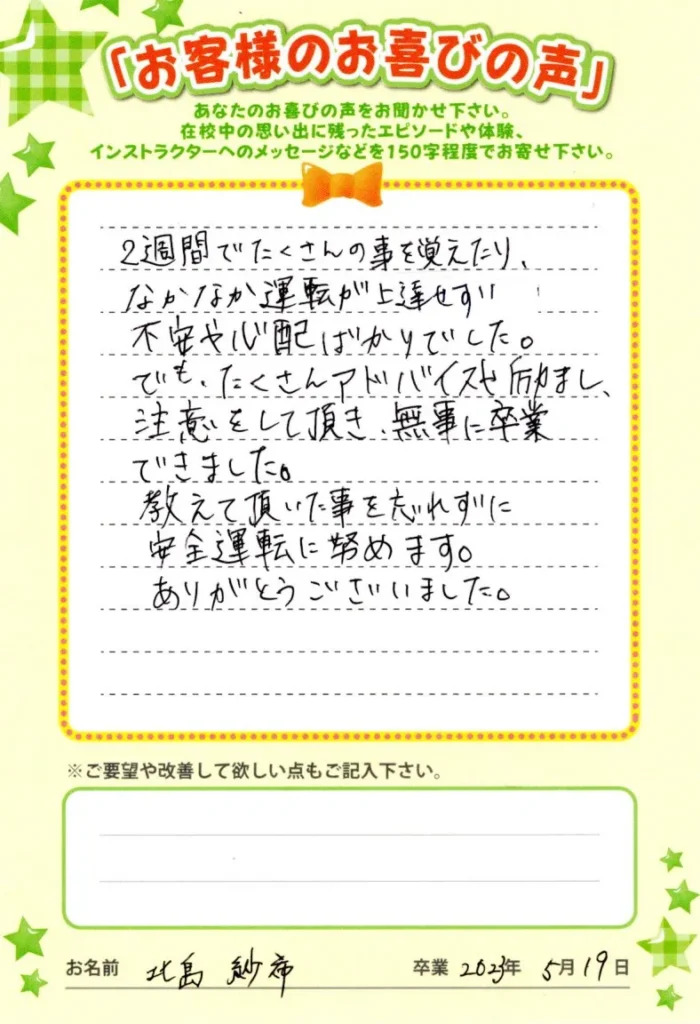 「お客様のお喜びの声」
あなたのお喜びの声をお聞かせ下さい。
在校中の思い出に残ったエピソードや体験、
インストラクターへのメッセージなどを150字程度でお寄せ下さい。
2週間でたくさんの事を覚えたり、
なかなか運転が上達せずい
不安や心配ばかりでした。
でも、たくさんアドバイスや励まし、
注意をして頂き、無事に卒業
できました。
教えて頂いた事を忘れずに
安全運転に努めます。
ありがとうございました。
※ご要望や改善して欲しい点もご記入下さい。
お名前 北島 紗希 卒業 2023年 5月19日